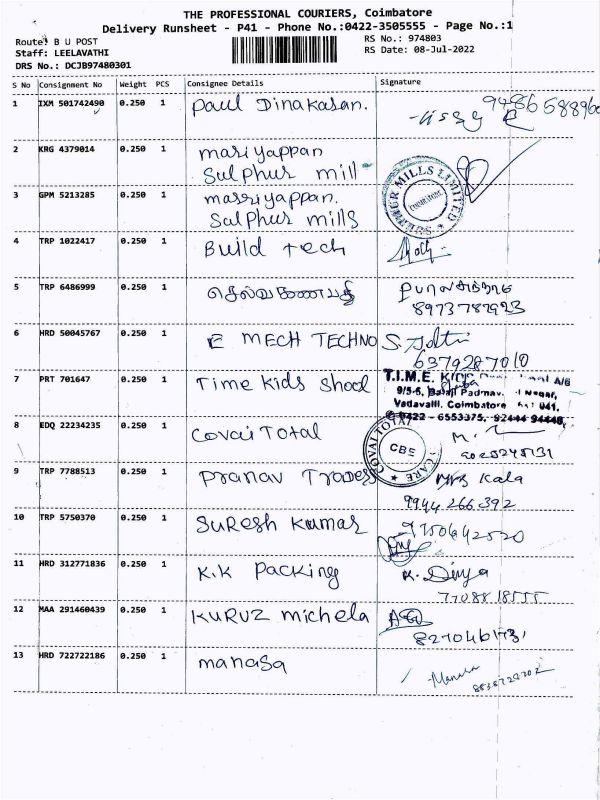 THE PROFESSIONAL COURIERS, Coimbatore
Delivery Runsheet - P41 - Phone No.:0422-3505555 - Page No.:1
Route: B U POST
RS No.: 974803
Staff: LEELAVATHI
RS Date: 08-Jul-2022
DRS No.: DCJB97480301
S No Consignment No Weight PCS Consignee Details Signature
1 IXM 501742490 0.250 1 Paul Dinakaran.
2 KRG 4379014 0.250 1 mariyappan
Sulphur mill
3 GPM 5213285 0.250 1 marriyappan.
Sulphur mills
MILLS LIMITED
4 TRP 1022417 0.250 1 Build tech
5 TRP 6486999 0.250 1
6 HRD 50045767 0.250 1 E MECH TECHNO
6379287010
7 PRT 701647 0.250 1 Time Kids Shool T.I.M.E. KIDS A/6
9/5-6, Balaji Padmav Nagar,
Vadavalli, Coimbatore 641 041.
0422 - 6553375, 92444 94448
8 EDQ 22234235 0.250 1 Covai Total
COVAI TOTAL CARE
CBE
9 TRP 7788513 0.250 1 Pranav Traders Mrs Kala
9944 266392
10 TRP 5750370 0.250 1 SuResh Kumar
9750642520
11 HRD 312771836 0.250 1 K.K Packing K. Divya
12 MAA 291460439 0.250 1 KURUZ michela
13 HRD 722722186 0.250 1 manasa Manasa